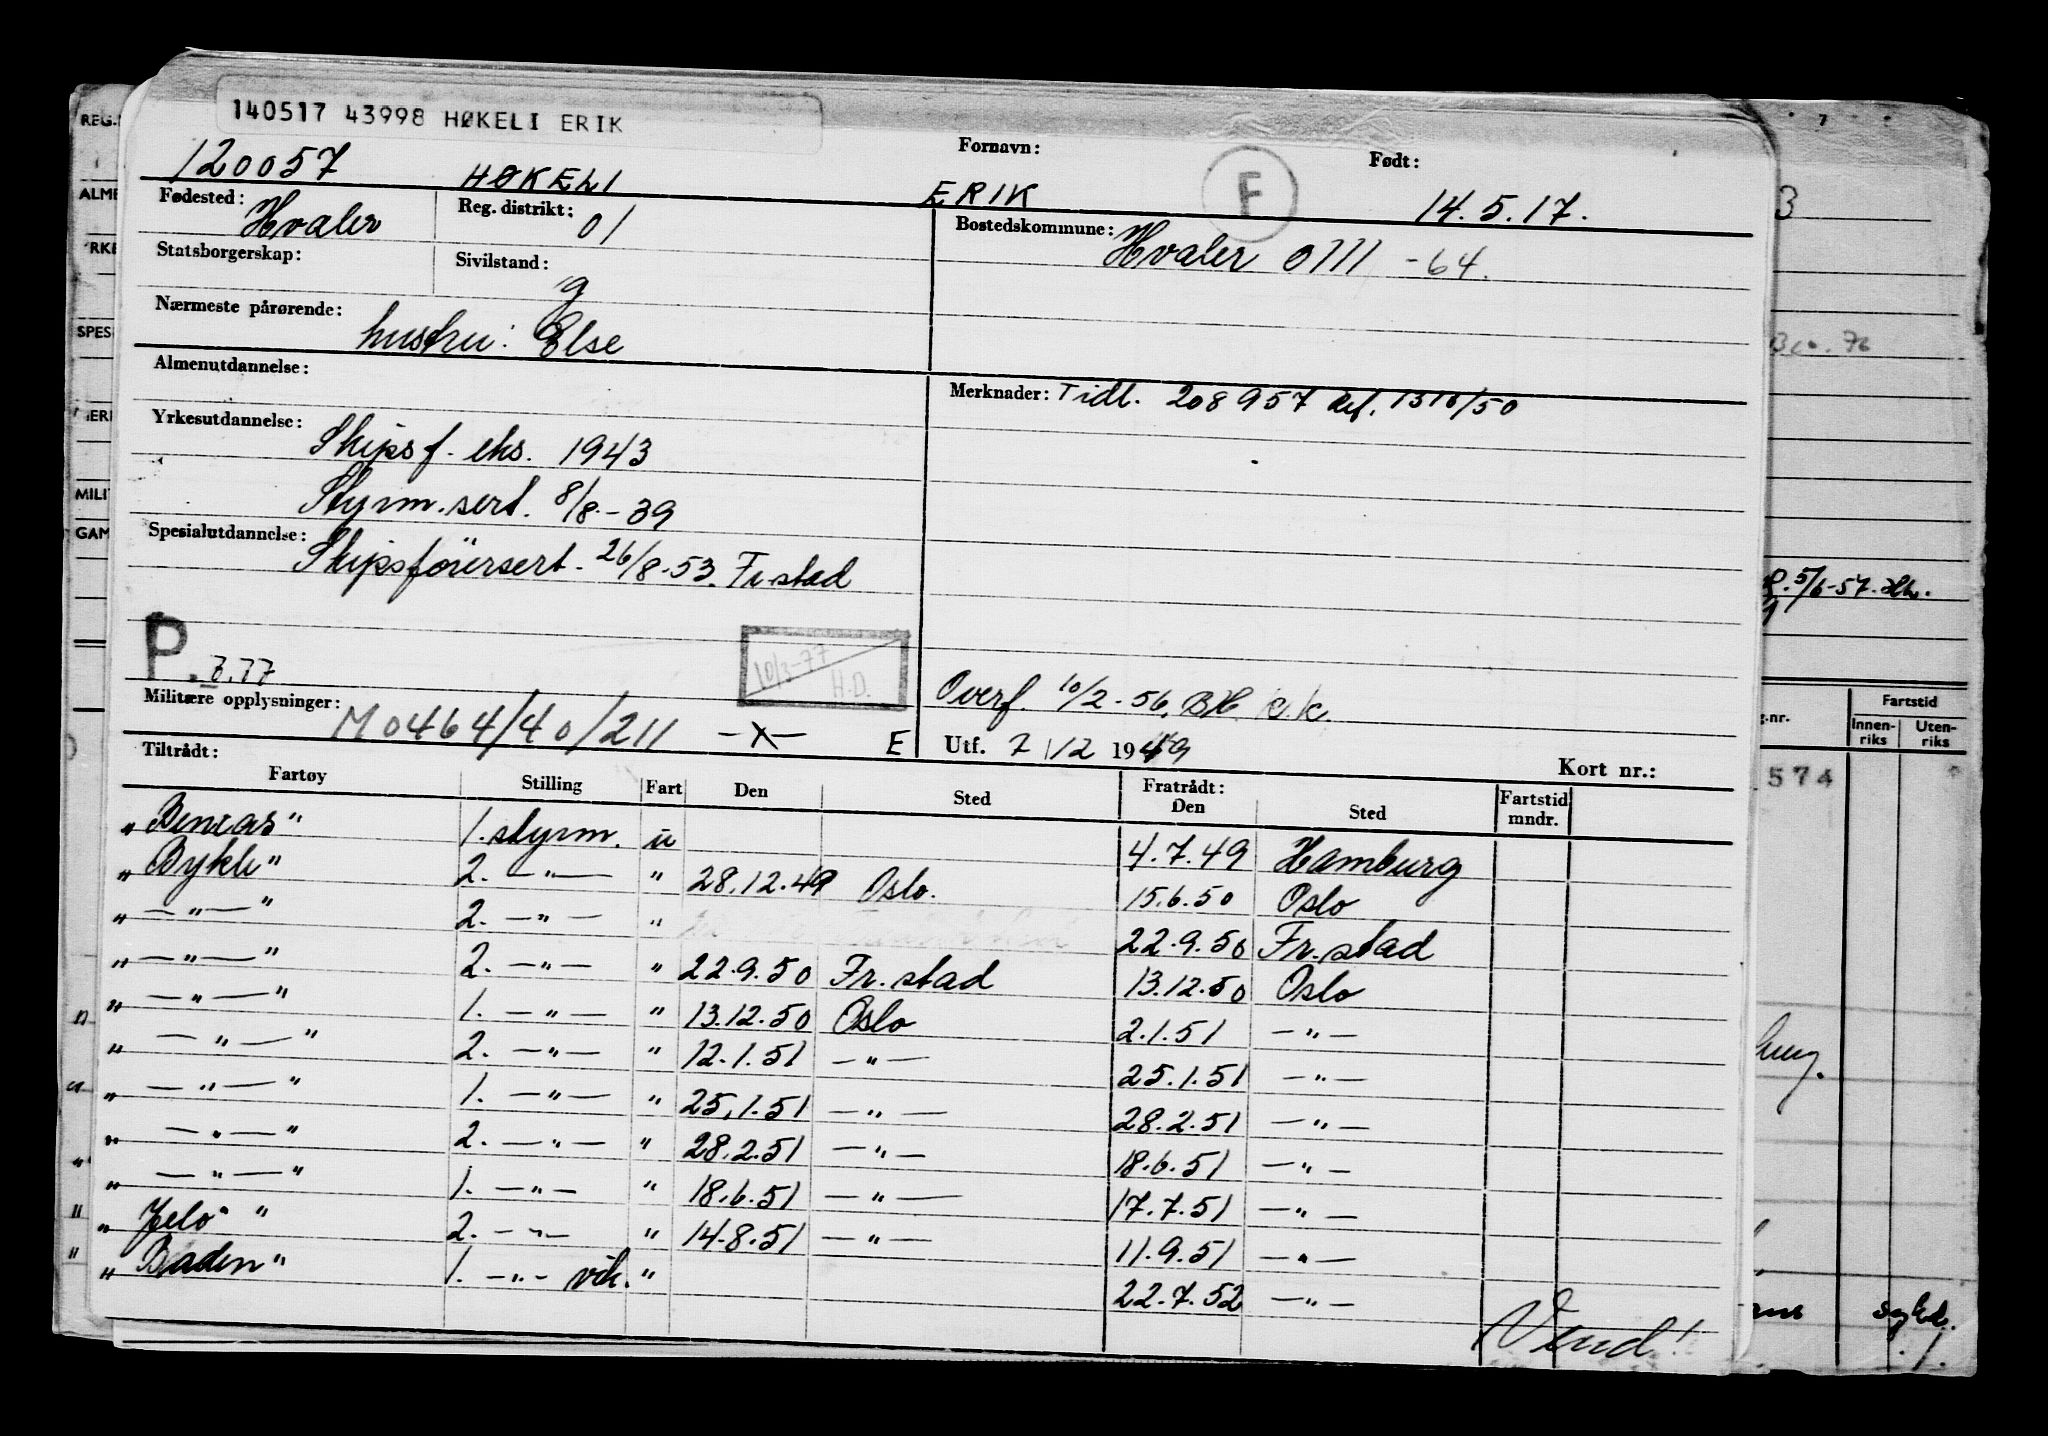 140517 43998 HØKELI ERIK
120057 HØKELI Fornavn: ERIK F Født: 14.5.17.
Fødested: Hvaler Reg. distrikt: 01 Bostedskommune: Hvaler 0111 -64.
Statsborgerskap: Sivilstand: g
Nærmeste pårørende: hustru: Else
Almenutdannelse: Merknader: Tidl. 208957
Yrkesutdannelse: Skipsf. eks. 1943
Styrm.sert. 8/8-39
Spesialutdannelse: Skipsførersert. 26/8.53. Fr.stad
P. 3.77 10/3-77 H.D.
Overf. 10/2-56.
Militære opplysninger: M0464/40/211 -x- E Utf. 7/12 1949
Tiltrådt: Kort nr.:
Fartøy Stilling Fart Den Sted Fratrådt: Den Sted Fartstid mndr.
„Beneas" 1. styrm. u 4.7.49 Hamburg
„Bykle" 2. —"— " 28.12.49 Oslo. 15.6.50 Oslo
„—"—" 2. —"— " 22.9.50 Fr.stad
„—"—" 2. —"— " 22.9.50 Fr.stad 13.12.50 Oslo
„—"—" 1. —"— " 13.12.50 Oslo 2.1.51 —"—
„—"—" 2. —"— " 12.1.51 —"— 25.1.51 —"—
„—"—" 1. —"— " 25.1.51 —"— 28.2.51 —"—
„—"—" 2. —"— " 28.2.51 —"— 18.6.51 —"—
„—"—" 1. —"— " 18.6.51 —"— 17.7.51 —"—
„Jelø" 2. —"— " 14.8.51 —"— 11.9.51 —"—
„Baden" 1. —"— vik. " 22.7.52 —"—
Vend!
REG.
ALME
YRKE
SPES
MILIT
GAM
7
3
5/6-57.
Fartstid
Innenriks Utenriks
574
sykd.